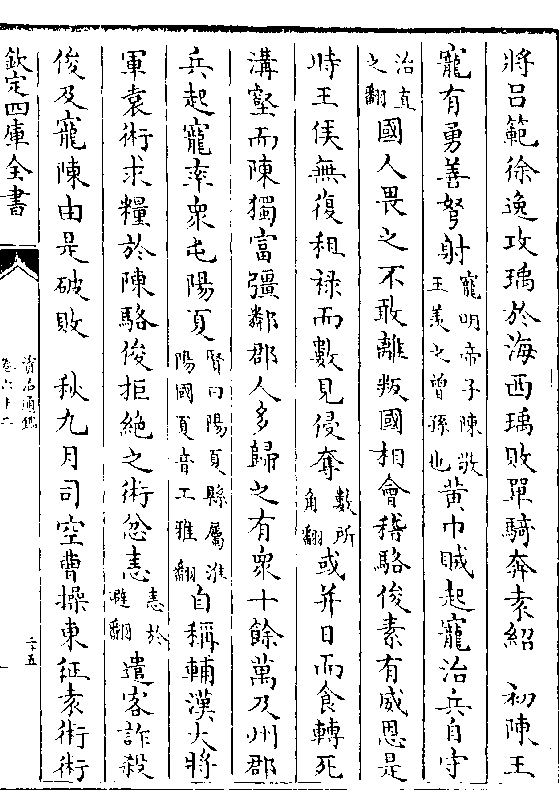 將呂範徐逸攻瑀於海西瑀敗單騎奔袁紹　初陳王
寵有勇善弩射寵明帝子陳敬王羨之曾孫也黃巾賊起寵治兵自守
治直之翻國人畏之不敢離叛國相會稽駱俊素有威恩是
時王侯無復租祿而數見侵奪數所角翻或并日而食轉死
溝壑而陳獨富彊鄰郡人多歸之有衆十餘萬及州郡
兵起寵率衆屯陽夏賢曰陽夏縣屬淮陽國夏音工雅翻自稱輔漢大將
軍袁術求糧於陳駱俊拒絶之術忿恚恚於避翻遣客詐殺
俊及寵陳由是破敗　秋九月司空曹操東征袁術術
欽定四庫全書
資治通鑑
卷六十二
二十五